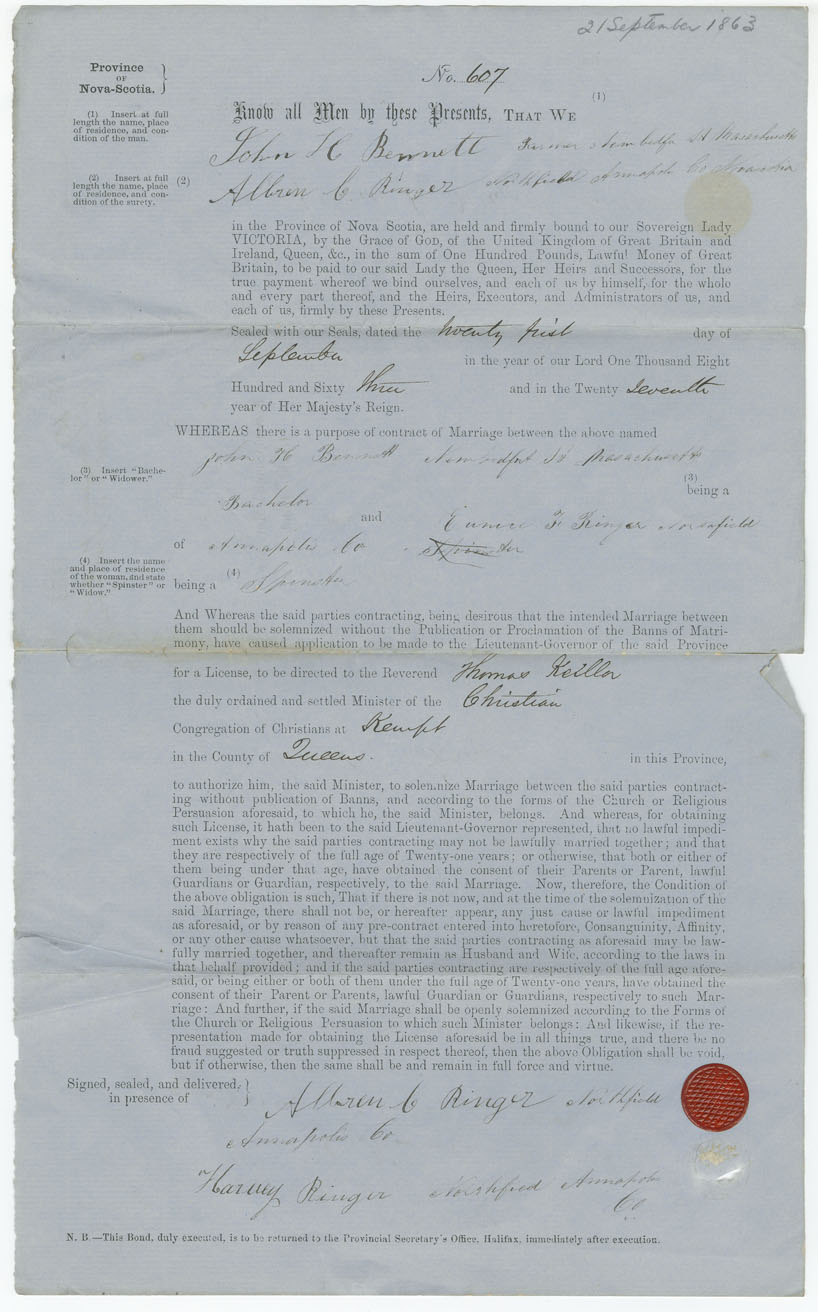 21 September 1863
Province
OF
Nova-Scotia.
No. 607
(1) Insert at full
length the name, place
of residence, and con-
dition of the man.
(1)
Know all Men by these Presents, THAT WE
John H Bennett Farmer
(2) Insert at full
length the name, place
of residence, and con-
dition of the surety.
(2)
Albren C Ringer Northfield Annapolis Co
in the Province of Nova Scotia, are held and firmly bound to our Sovereign Lady
VICTORIA, by the Grace of GOD, of the United Kingdom of Great Britain and
Ireland, Queen, &c., in the sum of One Hundred Pounds, Lawful Money of Great
Britain, to be paid to our said Lady the Queen, Her Heirs and Successors, for the
true payment whereof we bind ourselves, and each of us by himself, for the whole
and every part thereof, and the Heirs, Executors, and Administrators of us, and
each of us, firmly by these Presents.
Sealed with our Seals, dated the twenty first day of
September in the year of our Lord One Thousand Eight
Hundred and Sixty three and in the Twenty Seventh
year of Her Majesty's Reign.
WHEREAS there is a purpose of contract of Marriage between the above named
John H Bennett Masachusetts
(3) Insert "Bache-
lor" or "Widower."
(3)
being a
Bachelor
and Eunice F Ringer
of Annapolis Co Spinster
(4) Insert the name
and place of residence
of the woman, and state
whether "Spinster" or
"Widow."
being a (4) Spinster
And Whereas the said parties contracting, being desirous that the intended Marriage between
them should be solemnized without the Publication or Proclamation of the Banns of Matri-
mony, have caused application to be made to the Lieutenant-Governor of the said Province
for a License, to be directed to the Reverend Thomas Keillor
the duly ordained and settled Minister of the Christian
Congregation of Christians at Kempt
in the County of Queens. in this Province,
to authorize him, the said Minister, to solemnize Marriage between the said parties contract-
ing without publication of Banns, and according to the forms of the Church or Religious
Persuasion aforesaid, to which he, the said Minister, belongs. And whereas, for obtaining
such License, it hath been to the said Lieutenant-Governor represented, that no lawful impedi-
ment exists why the said parties contracting may not be lawfully married together; and that
they are respectively of the full age of Twenty-one years; or otherwise, that both or either of
them being under that age, have obtained the consent of their Parents or Parent, lawful
Guardians or Guardian, respectively, to the said Marriage. Now, therefore, the Condition of
the above obligation is such, That if there is not now, and at the time of the solemnization of the
said Marriage, there shall not be, or hereafter appear, any just cause or lawful impediment
as aforesaid, or by reason of any pre-contract entered into heretofore, Consanguinity, Affinity,
or any other cause whatsoever, but that the said parties contracting as aforesaid may be law-
fully married together, and thereafter remain as Husband and Wife, according to the laws in
that behalf provided; and if the said parties contracting are respectively of the full age afore-
said, or being either or both of them under the full age of Twenty-one years, have obtained the
consent of their Parent or Parents, lawful Guardian or Guardians, respectively to such Mar-
riage: And further, if the said Marriage shall be openly solemnized according to the Forms of
the Church or Religious Persuasion to which such Minister belongs: And likewise, if the re-
presentation made for obtaining the License aforesaid be in all things true, and there be no
fraud suggested or truth suppressed in respect thereof, then the above Obligation shall be void,
but if otherwise, then the same shall be and remain in full force and virtue.
Signed, sealed, and delivered,
in presence of
Albren C Ringer Northfield
Annapolis Co
Harvey Ringer Northfied Annapolis
Co
N. B.—This Bond, duly executed, is to be returned to the Provincial Secretary's Office, Halifax, immediately after execution.